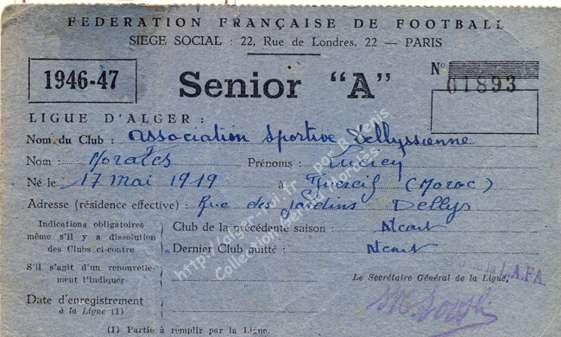 FÉDÉRATION FRANÇAISE DE FOOTBALL
SIEGE SOCIAL : 22, Rue de Londres, 22 — PARIS
1946-47
Senior "A"
N°
01893
LIGUE D'ALGER :
Nom du Club : Association Sportive Dellyssienne
Nom : Moralès Prénoms : Lucien
Né le 17 mai 1919 à (Maroc)
Adresse (résidence effective) : Rue des Jardins Dellys
Indications obligatoires
même s'il y a dissolution
des Clubs ci-contre
Club de la précédente saison : Néant
Dernier Club quitté : Néant
S'il s'agit d'un renouvelle-
ment l'indiquer
Le Secrétaire Général de la Ligue,
L.A.F.A.
Date d'enregistrement
à la Ligue (1)
(1) Partie à remplir par la Ligue.